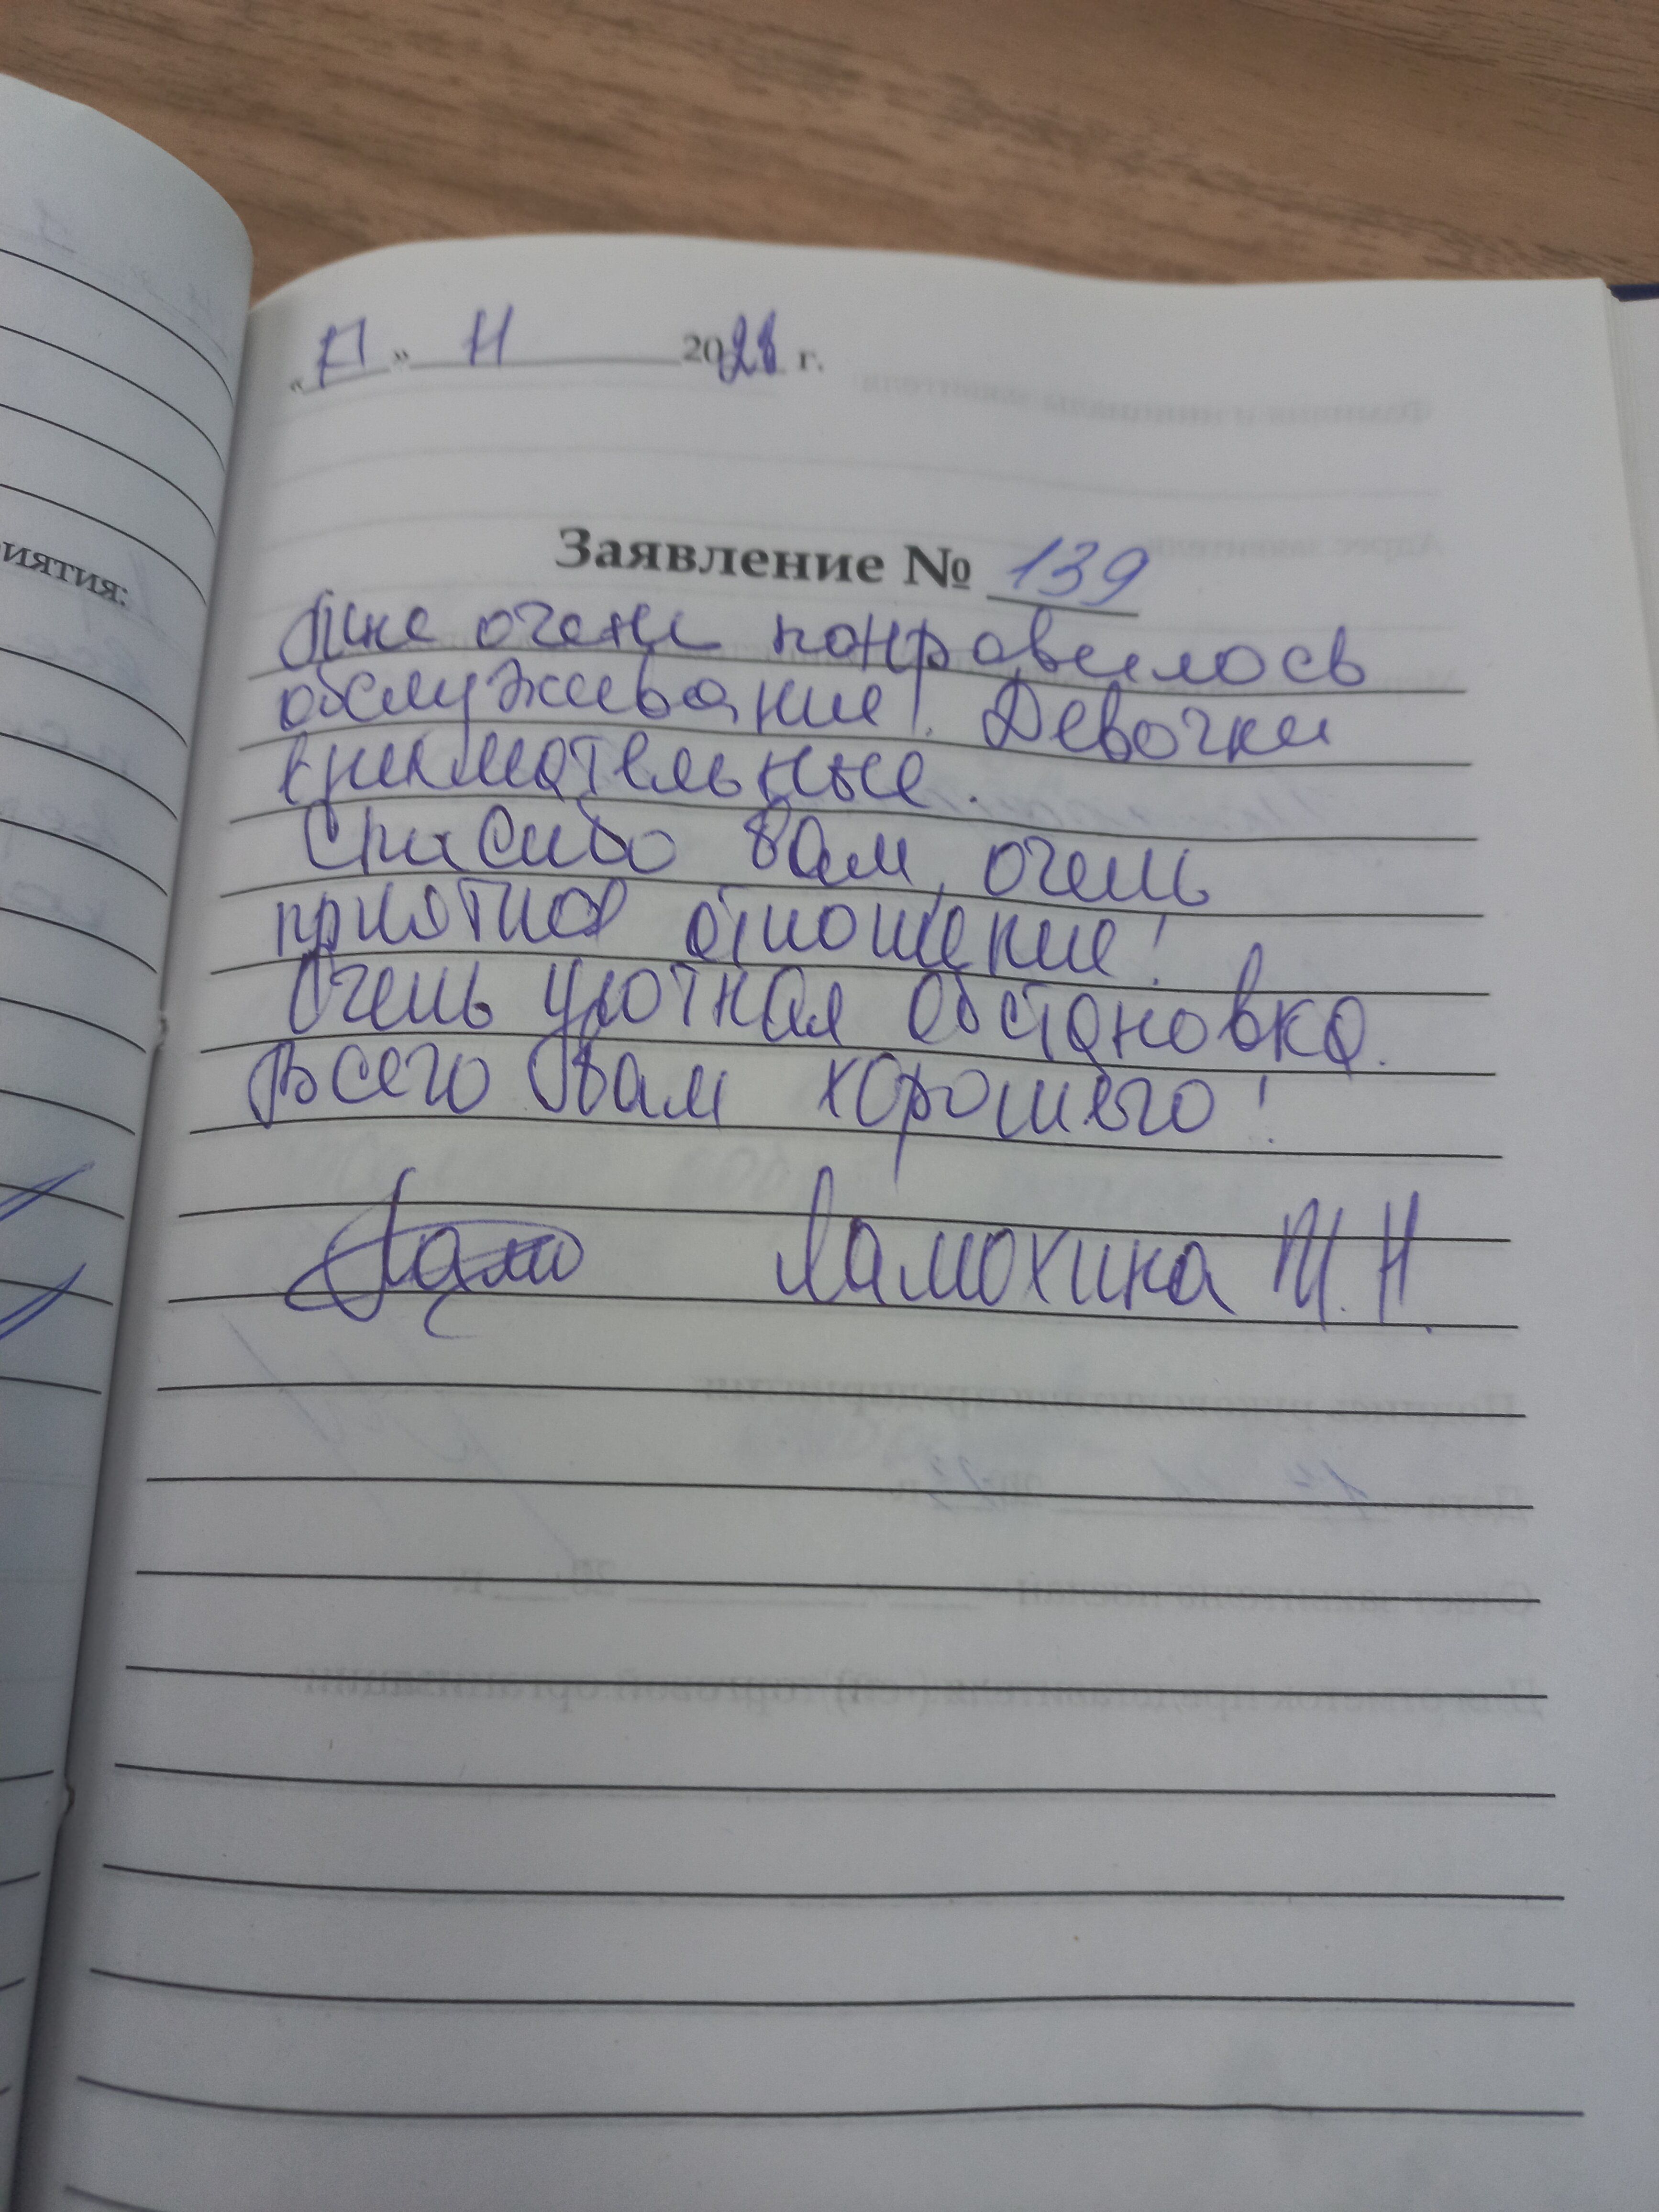 « 17 » 11 20 г.
Заявление № 139
Мне очень понравилось
обслуживание! Девочки
внимательные.
Спасибо Вам, очень
приятное отношение!
Очень уютная обстановка.
Всего Вам хорошего!
Ламохина Т.Н.
риятия: